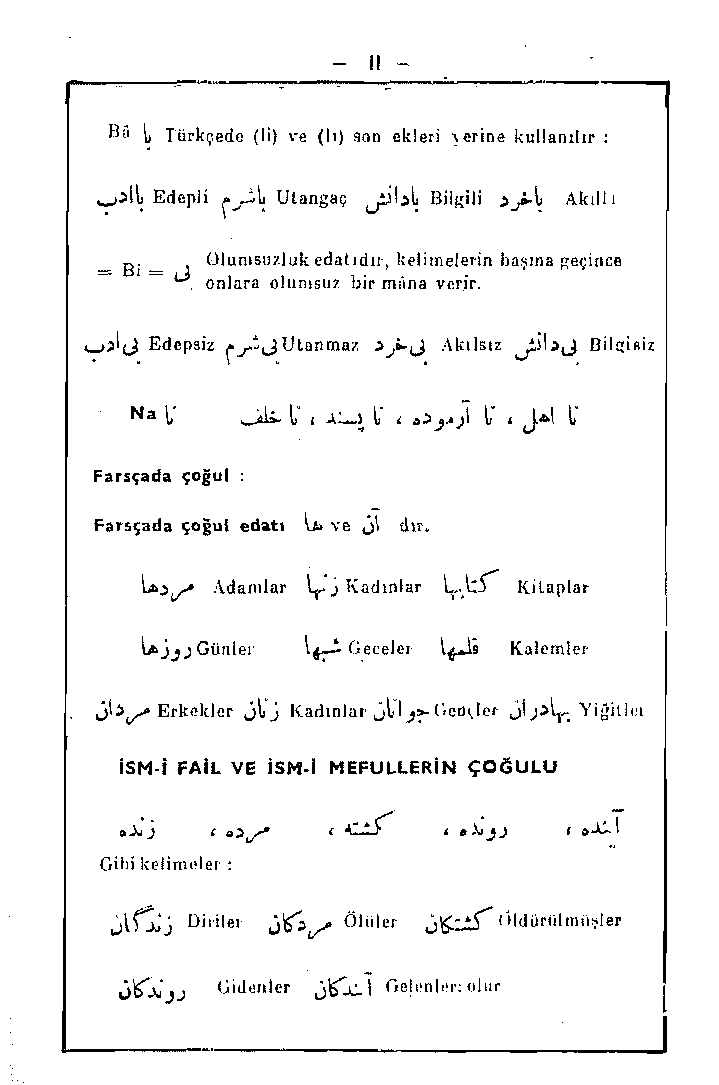 — 11 —
Bâ با Türkçede (li) ve (lı) son ekleri yerine kullanılır :
باادب Edepli باشرم Utangaç بادانش Bilgili باخرد Akıllı
= Bi = بى Olumsuzluk edatıdır, kelimelerin başına geçince
onlara olumsuz bir mâna verir.
بى ادب Edepsiz بى شرم Utanmaz بى خرد Akılsız بى دانش Bilgisiz
Na نا نا اهل ، نا آزموده ، نا پسند ، نا خلف
Farsçada çoğul :
Farsçada çoğul edatı ها ve آن dır.
مردها Adamlar زنها Kadınlar كتابها Kitaplar
روزها Günler شبها Geceler قلمها Kalemler
مردان Erkekler زنان Kadınlar جوانان Gençler بهادران Yiğitler
İSM-İ FAİL VE İSM-İ MEFULLERİN ÇOĞULU
آينده ، رونده ، كشته ، مرده ، زنده
Gibi kelimeler :
زندگان Diriler مردكان Ölüler كشتكان Öldürülmüşler
روندكان Gidenler آيندكان Gelenler: olur